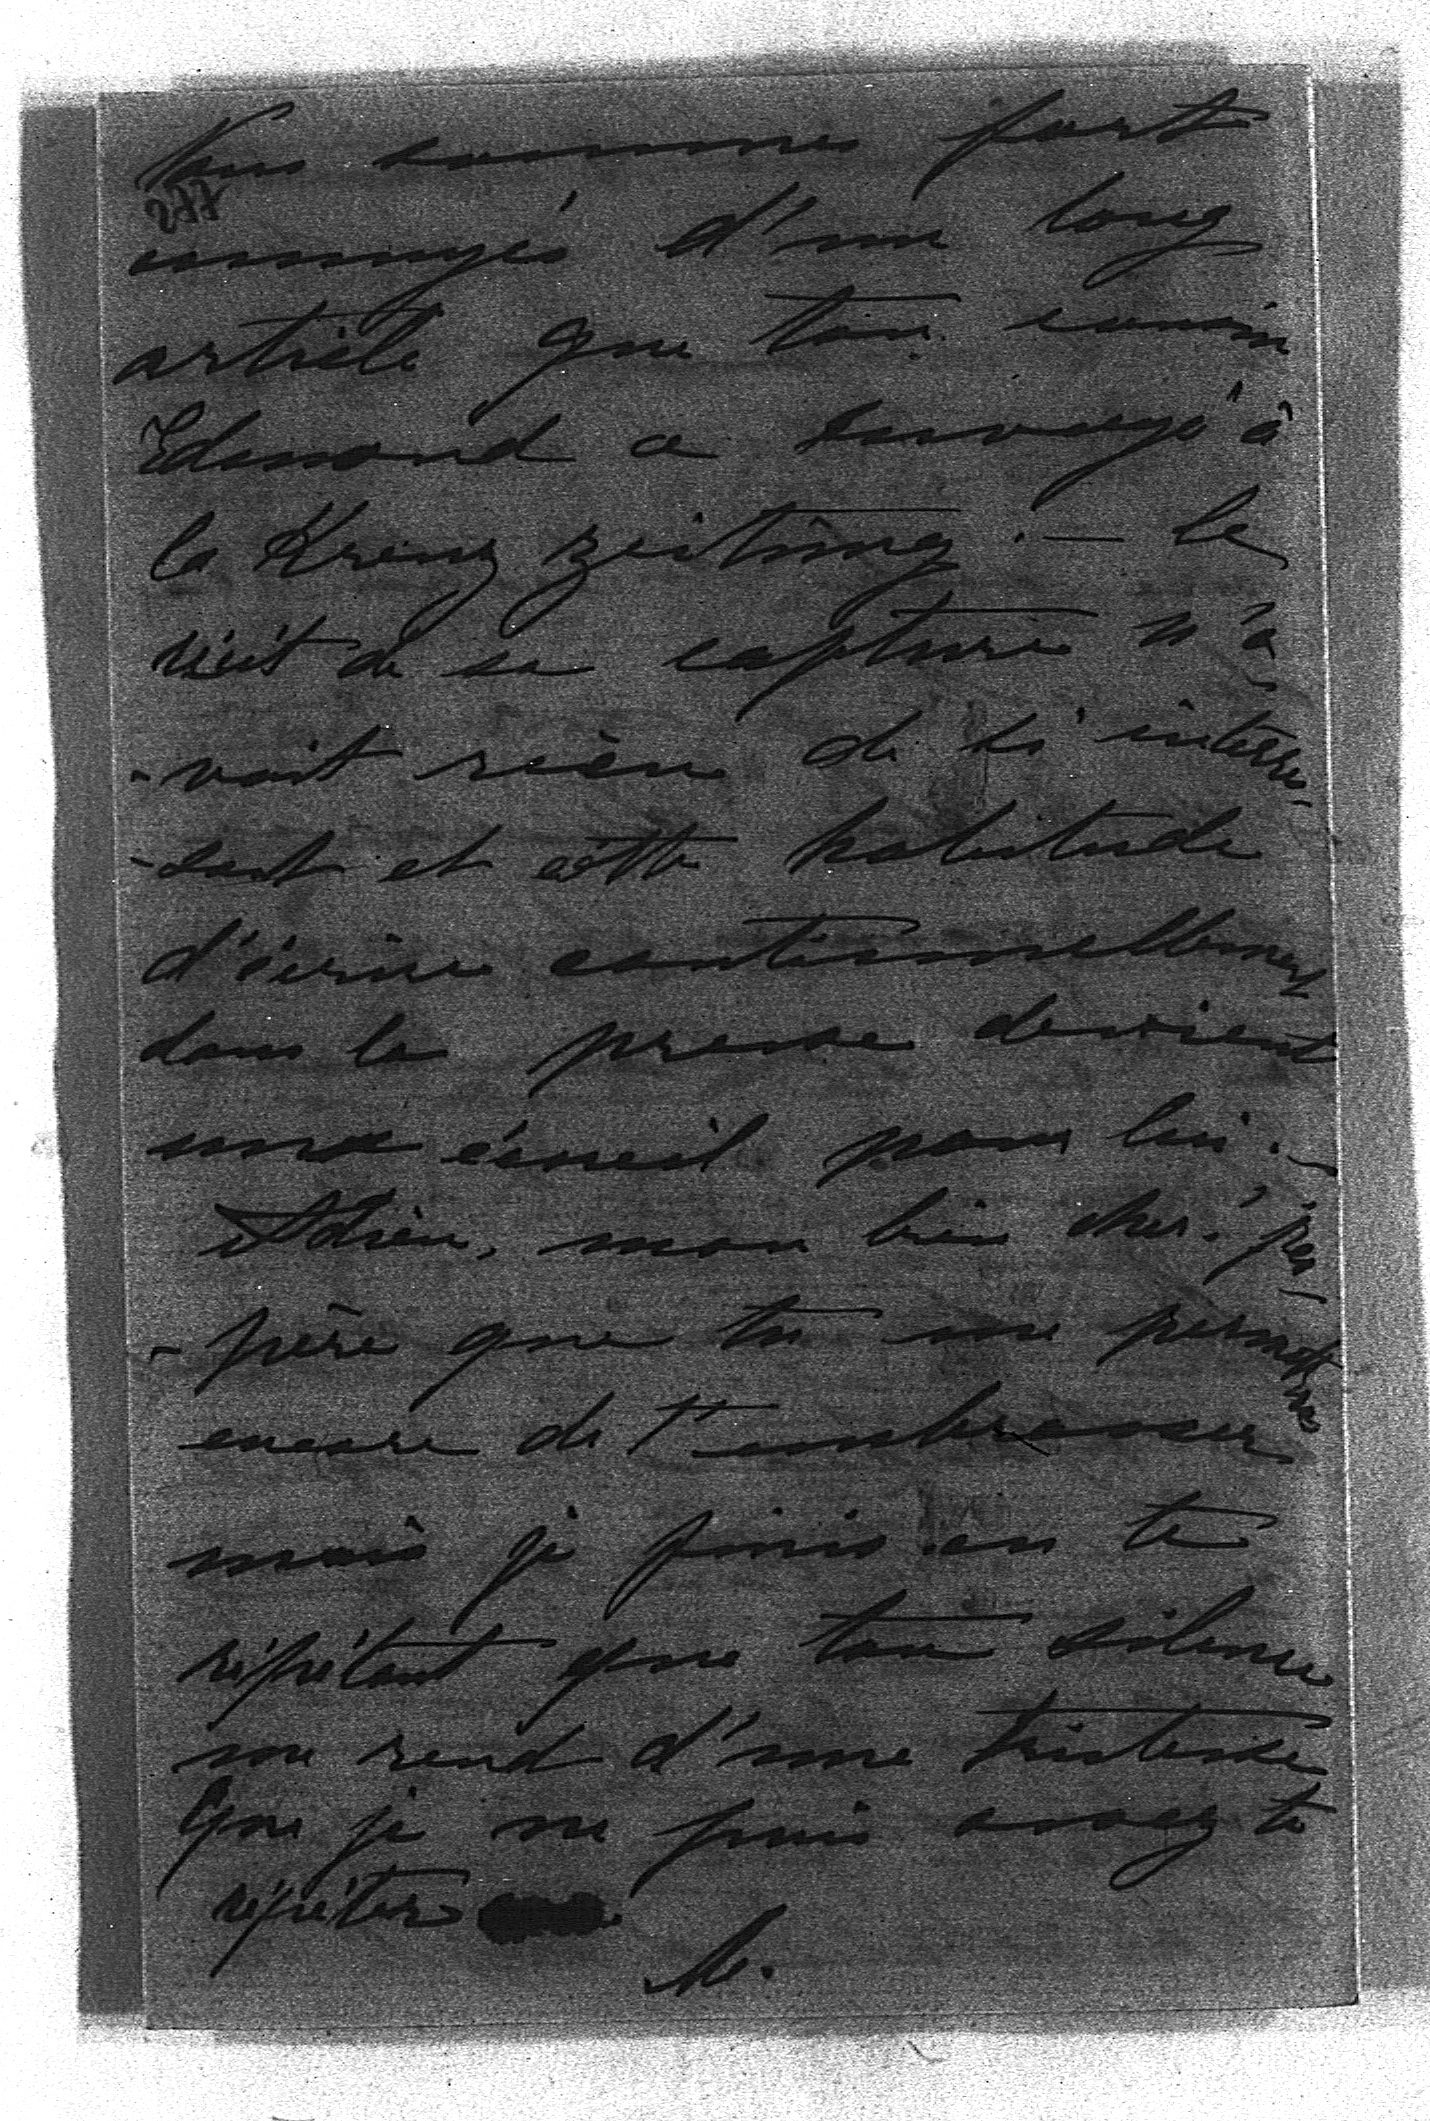 Nous sommes fort
277
ennuyés d'un long
article que ton cousin
Edmond a envoyé à
la Kreuz zeitung. — le
récit de sa capture n'a
-vait rien de si intéres-
-sant et cette habitude
d'écrire continuellement
dans la presse devient
un écueil pour lui. —
Adieu, mon bien cher! j'es-
-père que tu me permets
encore de t'embrasser
mais je finis en te
répétant que ton silence
me rend d'une tristesse
que je ne puis assez te
répéter
M.